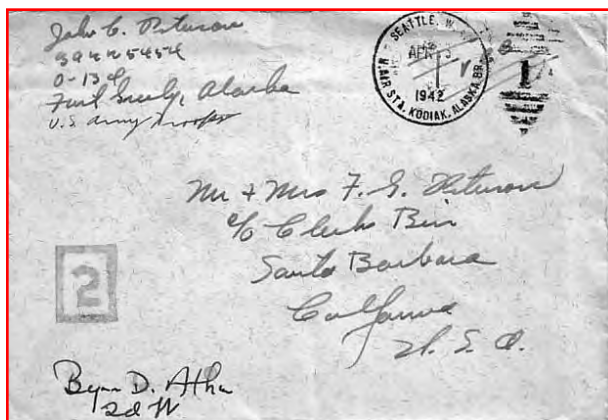 John C. Peterson
39225454
Fort Greely, Alaska
U.S. Army Troops
SEATTLE, W
APR
1942
N. AIR STA. KODIAK, ALASKA BR.
1
Mr + Mrs F. G. Peterson
c/o Clerks Bin
Santa Barbara
California
U. S. A.
2
D. Atha
2d